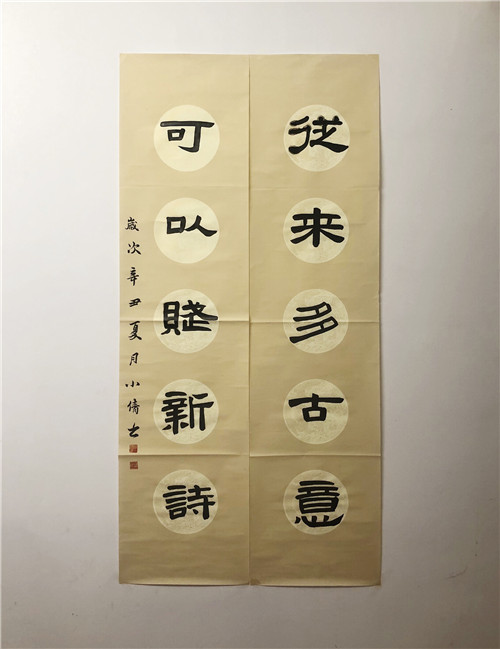 從来多古意
可以賦新詩
歲次辛丑夏月小倩書